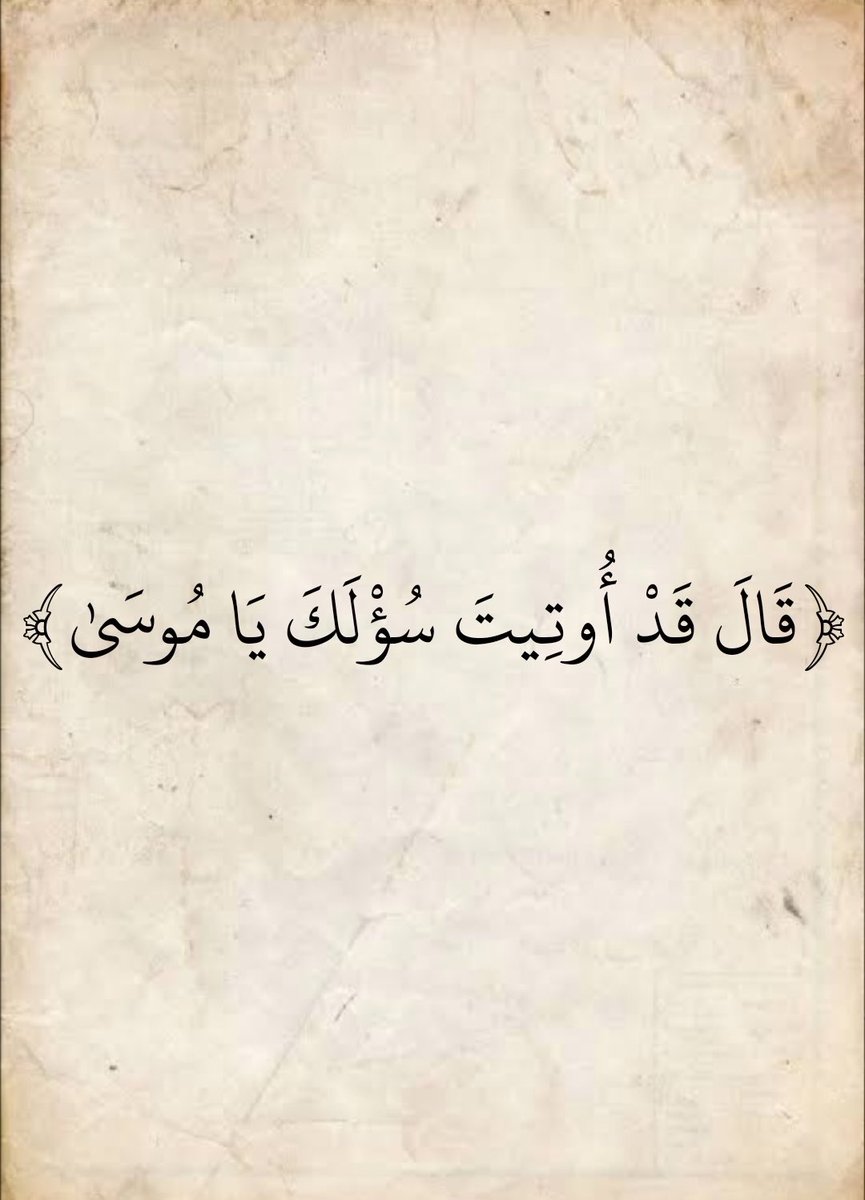 ﴿قَالَ قَدْ أُوتِيتَ سُؤْلَكَ يَا مُوسَىٰ﴾